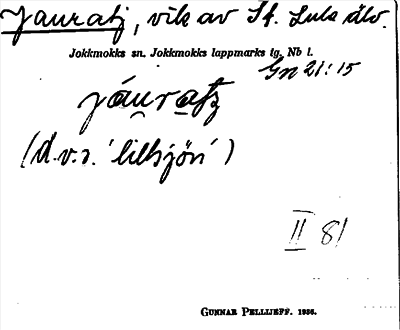 Jauratj, vik av St. Lule älv.
Jokkmokks sn. Jokkmokks lappmarks tg. Nb l.
Gn 21:15
jáuratj
(d.v.s. 'lillsjön')
II 81
GUNNAR PELLIJEFF. 1936.